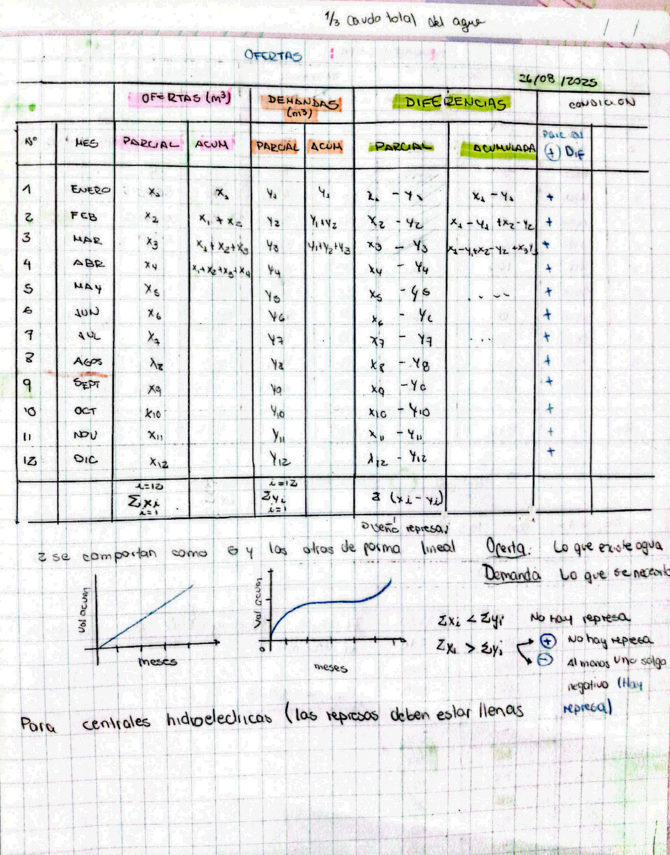 1/3 caudo total del agua / /
OFERTAS
26/08/2025
OFERTAS (m³) DEMANDAS (m³) DIFERENCIAS CONDICION
N° MES PARCIAL ACUM PARCIAL ACUM PARCIAL ACUMULADA (+) DIF
1 ENERO x₁ x₁ y₁ y₁ x₁ - y₁ x₁ - y₁ +
2 FEB x₂ x₁ + x₂ y₂ y₁+y₂ x₂ - y₂ x₁ - y₁ + x₂ - y₂ +
3 MAR x₃ x₁+x₂+x₃ y₃ y₁+y₂+y₃ x₃ - y₃ x₁-y₁+x₂-y₂+x₃y₃ +
4 ABR x₄ x₁+x₂+x₃+x₄ y₄ x₄ - y₄ +
5 MAY x₅ y₅ x₅ - y₅ .... +
6 JUN x₆ y₆ x₆ - y₆ +
7 JUL x₇ y₇ x₇ - y₇ ... +
8 AGOS x₈ y₈ x₈ - y₈ +
9 SEPT x₉ y₉ x₉ - y₉ +
10 OCT x₁₀ y₁₀ x₁₀ - y₁₀ +
11 NOV x₁₁ y₁₁ x₁₁ - y₁₁ +
12 DIC x₁₂ y₁₂ x₁₂ - y₁₂ +
i=12 i=12
Σxi Σyi (xi - yi)
i=1 i=1
Diseño represa
2 se comportan como y los otros de forma lineal Oferta: Lo que existe agua
Demanda Lo que se necesita
Vol acum
meses
Vol acum
0
meses
Σxi < Σyi No hay represa
Σxi > Σyi (+) No hay represa
(-) Al menos uno salga
negativo (Hay
represa)
Para centrales hidroelectricas (las represas deben estar llenas